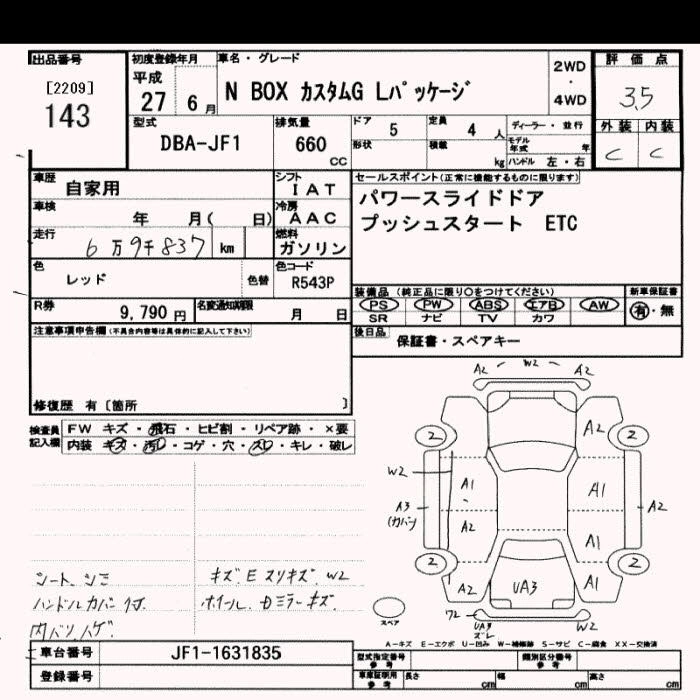 出品番号
[2209]
143
初度登録年月
平成
27 6 月
車名・グレード
N BOX カスタムG Lパッケージ
2WD
・
4WD
評価点
3.5
外装 内装
C C
型式
DBA-JF1
排気量
660
CC
ドア 5
定員 4 人
形状
積載 kg
ディーラー・並行
モデル年式 年
ハンドル 左・右
車歴 自家用
シフト
IAT
車検 年 月( 日)
冷房
AAC
走行 6万9千837 km
燃料
ガソリン
色 レッド
色替
色コード
R543P
R券 9,790 円
名変通知期限 月 日
セールスポイント(正常に機能するものに限ります)
パワースライドドア
プッシュスタート ETC
装備品(純正品に限り〇をつけてください)
新車保証書
PS PW ABS エアB AW
有・無
SR ナビ TV カワ
後日品 保証書・スペアキー
注意事項申告欄(不具合内容等は具体的に記入して下さい)
修復歴 有〔箇所 〕
検査員記入欄
FW キズ・飛石・ヒビ割・リペア跡・×要
内装 キズ・汚レ・コゲ・穴・スレ・キレ・破レ
A2 W2 A2
2 A2 2
W2 A1 A1
A3 A2 A2
(カバン)
A1
2 2
A2 UA3 A1
ワレ W2
UA3
ズレ
スペア
シート、シミ
ハンドルカバー付
内バリハゲ
キズ E スリキズ、W2
ホイール、Dミラーキズ
A-キズ E-エクボ U-凹み W-補修跡 S-サビ C-腐食 XX-交換済
車台番号 JF1-1631835
登録番号
型式指定番号 参考
類別区分番号 参考
車庫証明用 参考
長さ cm
幅 cm
高さ cm